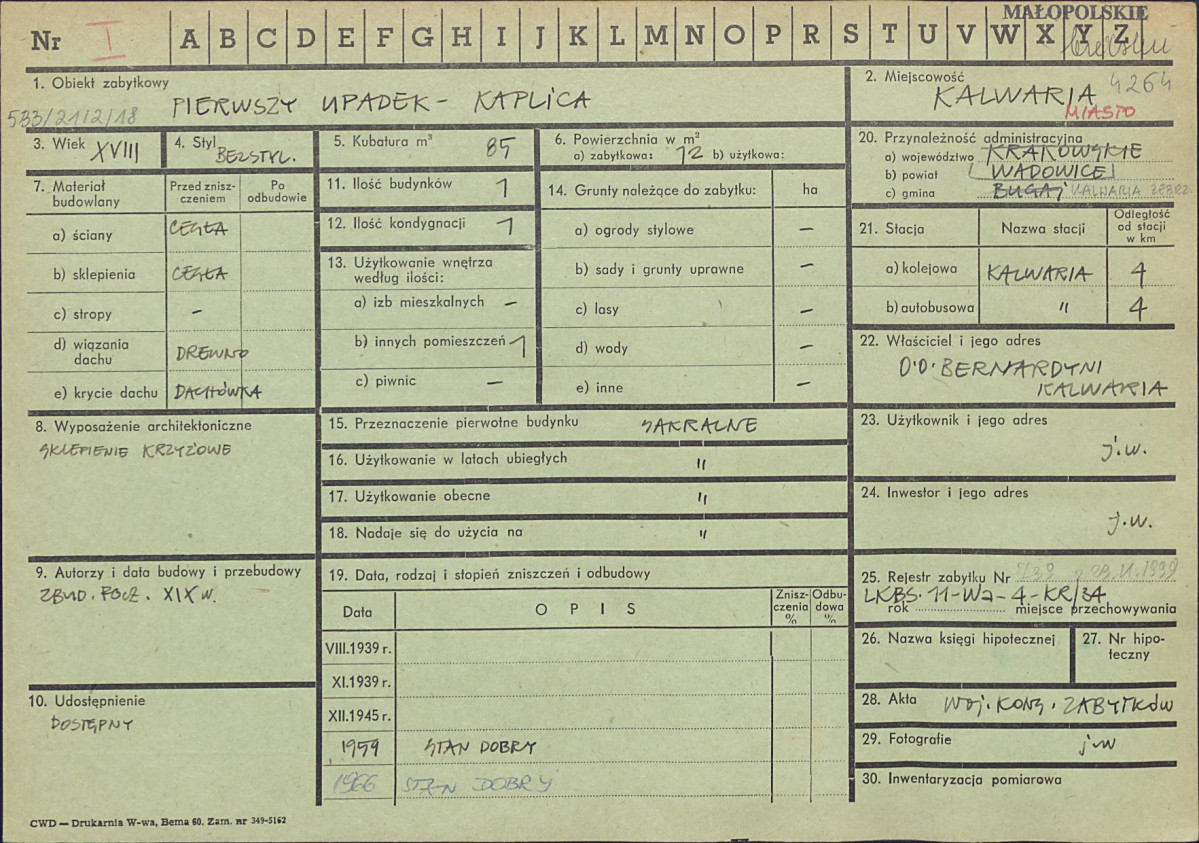 MAŁOPOLSKIE
Nr I A B C D E F G H I J K L M N O P R S T U V W X Y Z
1. Obiekt zabytkowy
583/21/2/18
PIERWSZY UPADEK - KAPLICA
2. Miejscowość
4264
KALWARIA
MIASTO
3. Wiek XVIII
4. Styl BEZSTYL.
5. Kubatura m³ 85
6. Powierzchnia w m²
a) zabytkowa: 12 b) użytkowa:
7. Materiał budowlany
Przed zniszczeniem
Po odbudowie
a) ściany CEGŁA
b) sklepienia CEGŁA
c) stropy –
d) wiązania dachu DREWNO
e) krycie dachu DACHÓWKA
8. Wyposażenie architektoniczne
SKLEPIENIE KRZYŻOWE
9. Autorzy i data budowy i przebudowy
ZBUD. POCZ. XIX W.
10. Udostępnienie
DOSTĘPNY
11. Ilość budynków 1
12. Ilość kondygnacji 1
13. Użytkowanie wnętrza według ilości:
a) izb mieszkalnych –
b) innych pomieszczeń 1
c) piwnic –
14. Grunty należące do zabytku: ha
a) ogrody stylowe –
b) sady i grunty uprawne –
c) lasy –
d) wody –
e) inne –
15. Przeznaczenie pierwotne budynku SAKRALNE
16. Użytkowanie w latach ubiegłych "
17. Użytkowanie obecne "
18. Nadaje się do użycia na "
19. Data, rodzaj i stopień zniszczeń i odbudowy
Data
OPIS
Zniszczenia %
Odbudowa %
VIII.1939 r.
XI.1939 r.
XII.1945 r.
1959 STAN DOBRY
1966 STAN DOBRY
20. Przynależność administracyjna
a) województwo KRAKOWSKIE
b) powiat WADOWICE
c) gmina BUGAJ KALWARIA ZEBRZ.
21. Stacja
Nazwa stacji
Odległość od stacji w km
a) kolejowa KALWARIA 4
b) autobusowa " 4
22. Właściciel i jego adres
O.O. BERNARDYNI
KALWARIA
23. Użytkownik i jego adres
j.w.
24. Inwestor i jego adres
j.w.
25. Rejestr zabytku Nr
LKBS-11-Wa-4-KR/34
rok miejsce przechowywania
26. Nazwa księgi hipotecznej
27. Nr hipoteczny
28. Akta WOJ. KONS. ZABYTKÓW
29. Fotografie j.w
30. Inwentaryzacja pomiarowa
CWD — Drukarnia W-wa, Bema 60. Zam. nr 349-5162